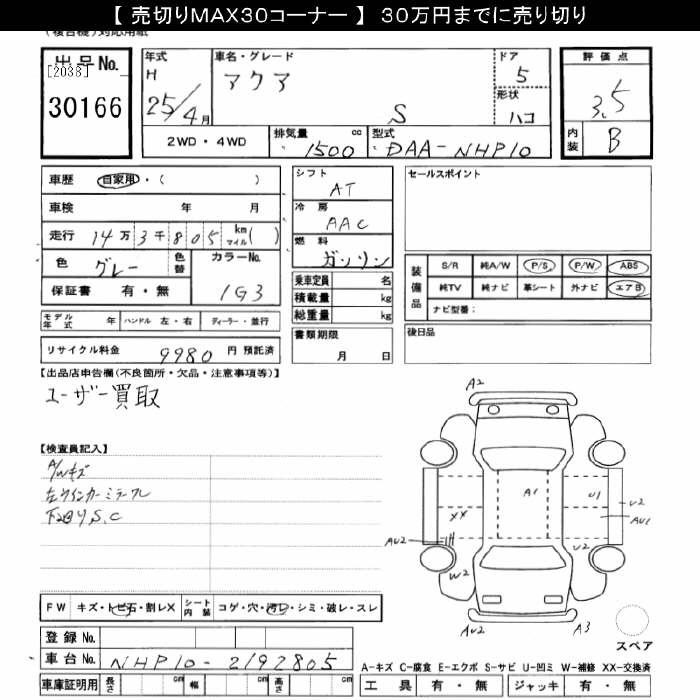 【 売切りMAX30コーナー 】 30万円までに売り切り
出品No.
[2038]
30166
年式
H
25/4月
車名・グレード
アクア
S
ドア
5
形状
ハコ
評価点
3.5
内装
B
2WD・4WD
排気量 cc
1500
型式
DAA-NHP10
車歴 自家用・( )
車検 年 月
走行 14万3千805 km マイル( )
色 グレー
色替
カラーNo.
1G3
保証書 有・無
シフト
AT
冷房
AAC
燃料
ガソリン
乗車定員 名
積載量 kg
総重量 kg
書類期限
月 日
セールスポイント
装備品
S/R 純A/W P/S P/W ABS
純TV 純ナビ 革シート 外ナビ エアB
ナビ型番:
後日品
モデル年式 年 ハンドル 左・右 ディーラー・並行
リサイクル料金 9980 円 預託済
【出品店申告欄(不良箇所・欠品・注意事項等)】
ユーザー買取
【検査員記入】
A/Wキズ
左ウインカーミラーワレ
下廻りS.C
A2
A1
U1
U2
AU1
XX
AU2
U2
W2
AU2
A3
スペア
FW キズ・トビ石・割レX シート内装 コゲ・穴・汚レ・シミ・破レ・スレ
登録No.
車台No. NHP10-2192805
車庫証明用 長さ cm 幅 cm 高さ cm
A-キズ C-腐食 E-エクボ S-サビ U-凹ミ W-補修 XX-交換済
工具 有・無 ジャッキ 有・無